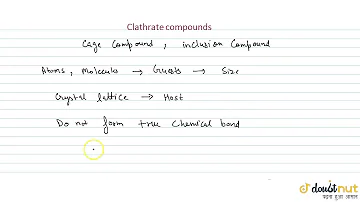 Clathrate compounds
Cage Compound, inclusion Compound
Atoms, Molecules → Guests → Size
Crystal lattice → Host
Do not form true Chemical bond
doubtnut
पढ़ना हुआ आसान